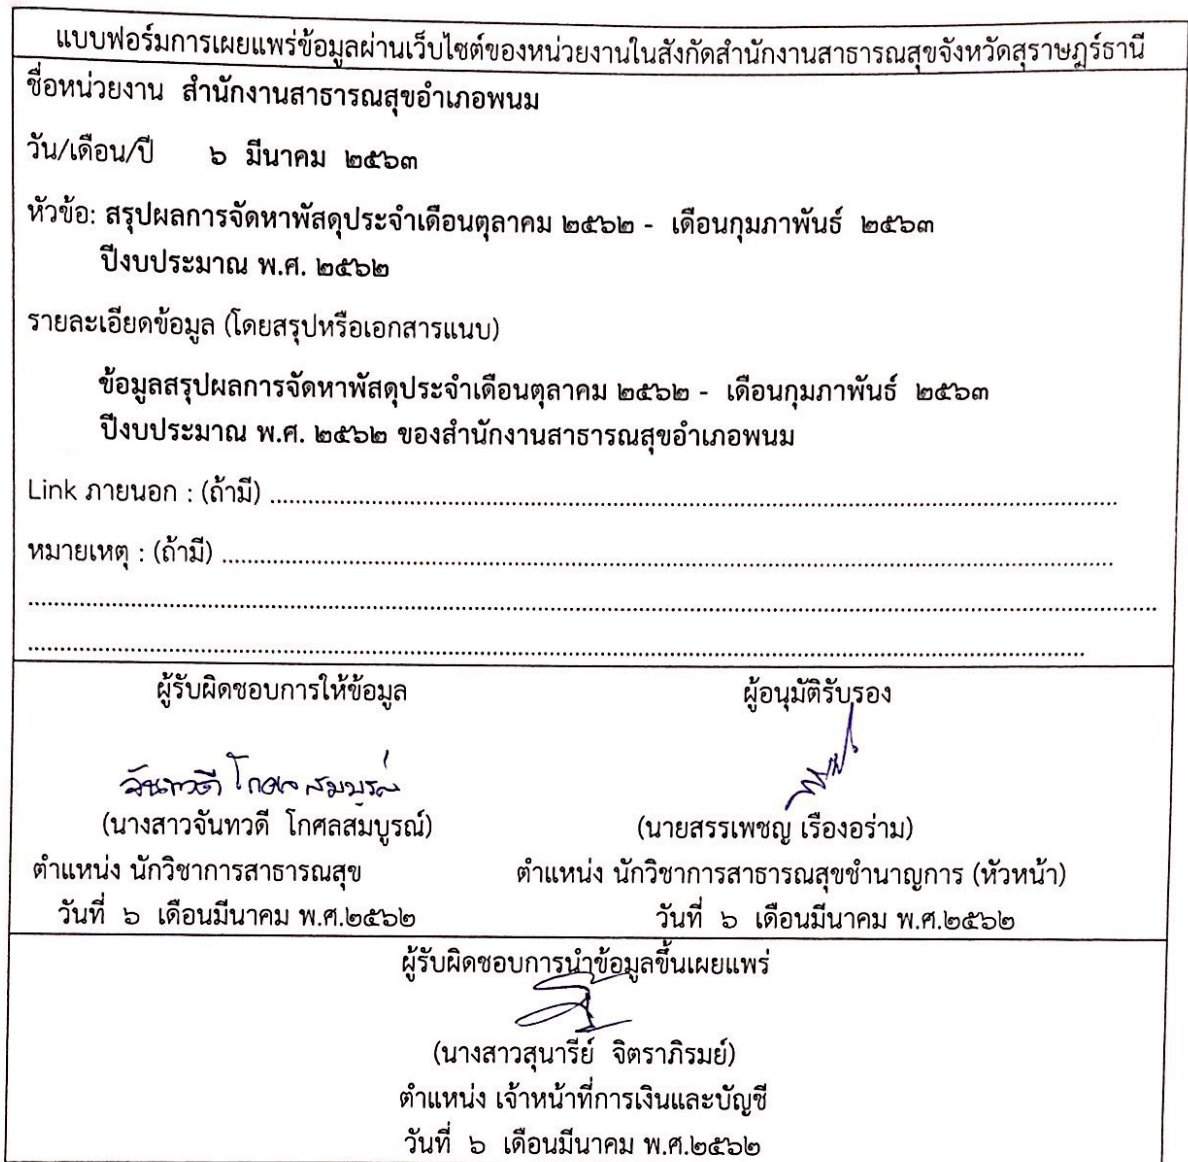 แบบฟอร์มการเผยแพร่ข้อมูลผ่านเว็บไซต์ของหน่วยงานในสังกัดสำนักงานสาธารณสุขจังหวัดสุราษฎร์ธานี
ชื่อหน่วยงาน สำนักงานสาธารณสุขอำเภอพนม
วัน/เดือน/ปี ๖ มีนาคม ๒๕๖๓
หัวข้อ: สรุปผลการจัดหาพัสดุประจำเดือนตุลาคม ๒๕๖๒ - เดือนกุมภาพันธ์ ๒๕๖๓
ปีงบประมาณ พ.ศ. ๒๕๖๒
รายละเอียดข้อมูล (โดยสรุปหรือเอกสารแนบ)
ข้อมูลสรุปผลการจัดหาพัสดุประจำเดือนตุลาคม ๒๕๖๒ - เดือนกุมภาพันธ์ ๒๕๖๓
ปีงบประมาณ พ.ศ. ๒๕๖๒ ของสำนักงานสาธารณสุขอำเภอพนม
Link ภายนอก : (ถ้ามี) ........................................
หมายเหตุ : (ถ้ามี) ........................................
ผู้รับผิดชอบการให้ข้อมูล ผู้อนุมัติรับรอง
จันทวดี โกศลสมบูรณ์
(นางสาวจันทวดี โกศลสมบูรณ์) (นายสรรเพชญ เรืองอร่าม)
ตำแหน่ง นักวิชาการสาธารณสุข ตำแหน่ง นักวิชาการสาธารณสุขชำนาญการ (หัวหน้า)
วันที่ ๖ เดือนมีนาคม พ.ศ.๒๕๖๒ วันที่ ๖ เดือนมีนาคม พ.ศ.๒๕๖๒
ผู้รับผิดชอบการนำข้อมูลขึ้นเผยแพร่
(นางสาวสุนารีย์ จิตราภิรมย์)
ตำแหน่ง เจ้าหน้าที่การเงินและบัญชี
วันที่ ๖ เดือนมีนาคม พ.ศ.๒๕๖๒